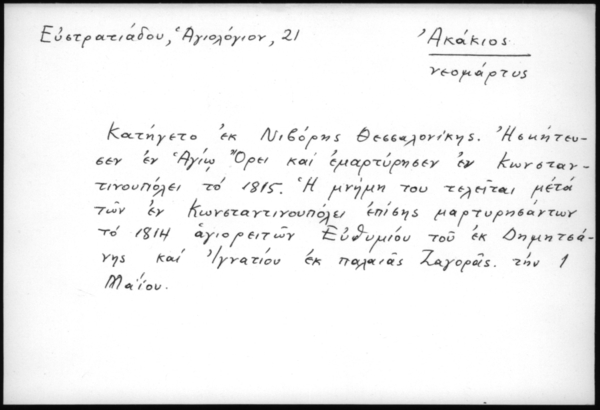 Εὐστρατιάδου, Ἁγιολόγιον, 21
Ἀκάκιος
νεομάρτυς
Κατήγετο ἐκ Νιβόρης Θεσσαλονίκης. Ἠσκήτευ-
σεν ἐν Ἁγίῳ Ὄρει καί ἐμαρτύρησεν ἐν Κωνσταν-
τινουπόλει τό 1815. Ἡ μνήμη του τελεῖται μετά
τῶν ἐν Κωνσταντινουπόλει ἐπίσης μαρτυρησάντων
τό 1814 ἁγιορειτῶν Εὐθυμίου τοῦ ἐκ Δημητσά-
νης καί Ἰγνατίου ἐκ παλαιᾶς Ζαγορᾶς. τήν 1
Μαΐου.